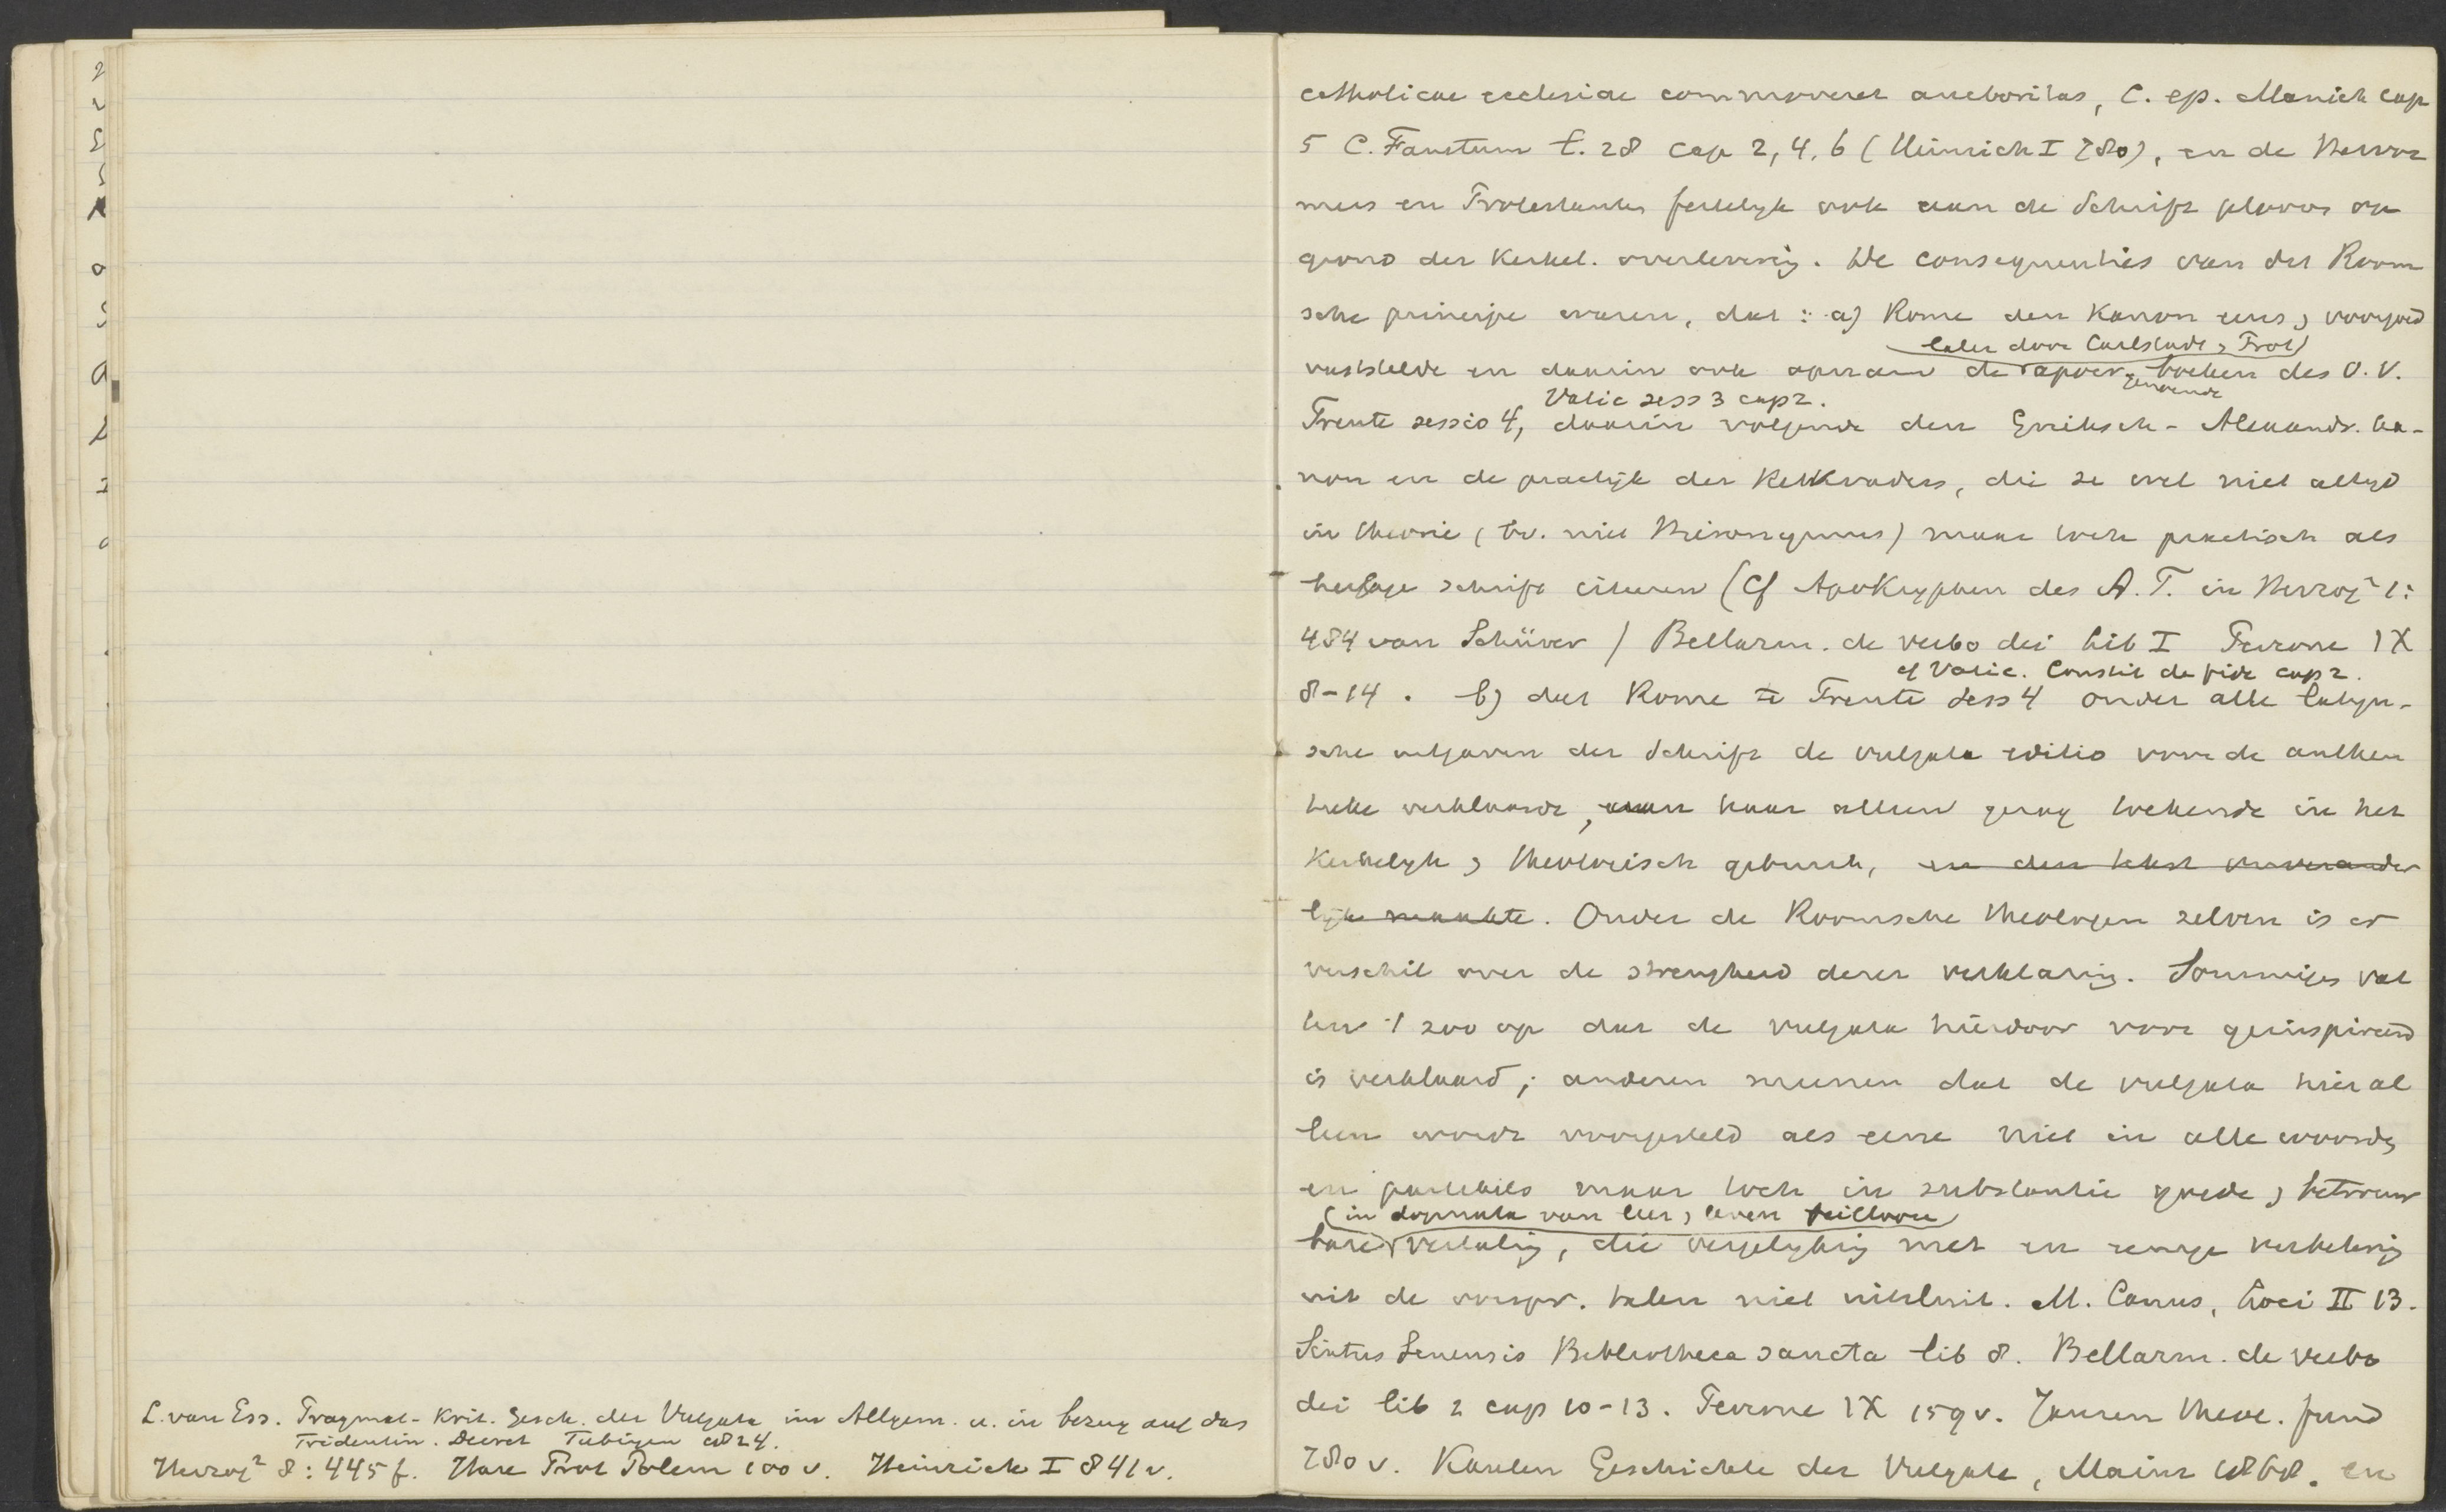 L. van Ess. Pragmat-Krit. Gesch. der Vulgata im Allgem. u. in bezug auf das
Tridentin. Decret Tübingen 1824.
Herzog² 8: 445 f. Hase Prot Polem 100 v. Heinrich I 841 v.
catholicae ecclesiae commoveret auctoritas, C. ep. Manich cap
5 C. Faustum l. 28 cap 2, 4, 6 (Heinrich I 780), en de Hervor
mers en Protestanten feitelijk ook aan de Schrift geloove op
grond der Kerkel. overlevering. De consequenties van dit Room
sche principe waren, dat: a) Rome den Kanon eens & voorgoed
later door Carlstadt & Prot)
vaststelde en daarin ook opnam de apocr. genoemde boeken des O. V.
Vatic sess 3 cap 2.
Trente sessio 4, daarin volgende den Grieksch-Alexandr. ka-
non en de practijk der Kerkvaders, die ze wel niet altijd
in theorie (bv. niet Hieronymus) maar toch praktisch als
heilige schrift citeeren (Cf Apokryphen des A. T. in Herzog² 1:
484 van Schürer) Bellarm. de verbo dei lib I Perrone IX
cf Vatic. Constit de fide cap 2.
8-14. b) dat Rome te Trente sess 4 onder alle latijn-
sche uitgaven der Schrift de vulgata editio voor de authen
tieke verklaarde, aan haar alleen gezag toekende in het
Kerkelijk & theologisch gebruik, en den tekst onverander
lijk maakte. Onder de Roomsche theologen zelven is er
verschil over de strengheid dezer verklaring. Sommigen vat
ten 't zoo op dat de vulgata hierdoor voor geinspireerd
is verklaard; anderen meenen dat de vulgata hier al
leen wordt voorgesteld als eene niet in alle woorden
en particulis maar toch in substantie goede & betrouw
(in dogmata van leer & leven feilloose)
bare vertaling, die vergelijking met en eenige verbetering
uit de oorspr. talen niet uitsluit. M. Canus, Loci II 13.
Sixtus Senensis Bibliotheca sancta lib 8. Bellarm. de verbo
dei lib 2 cap 10-13. Perrone IX 159 v. Jansen theol. fund
780 v. Kaulen Geschichte der Vulgata, Mainz 1868. en